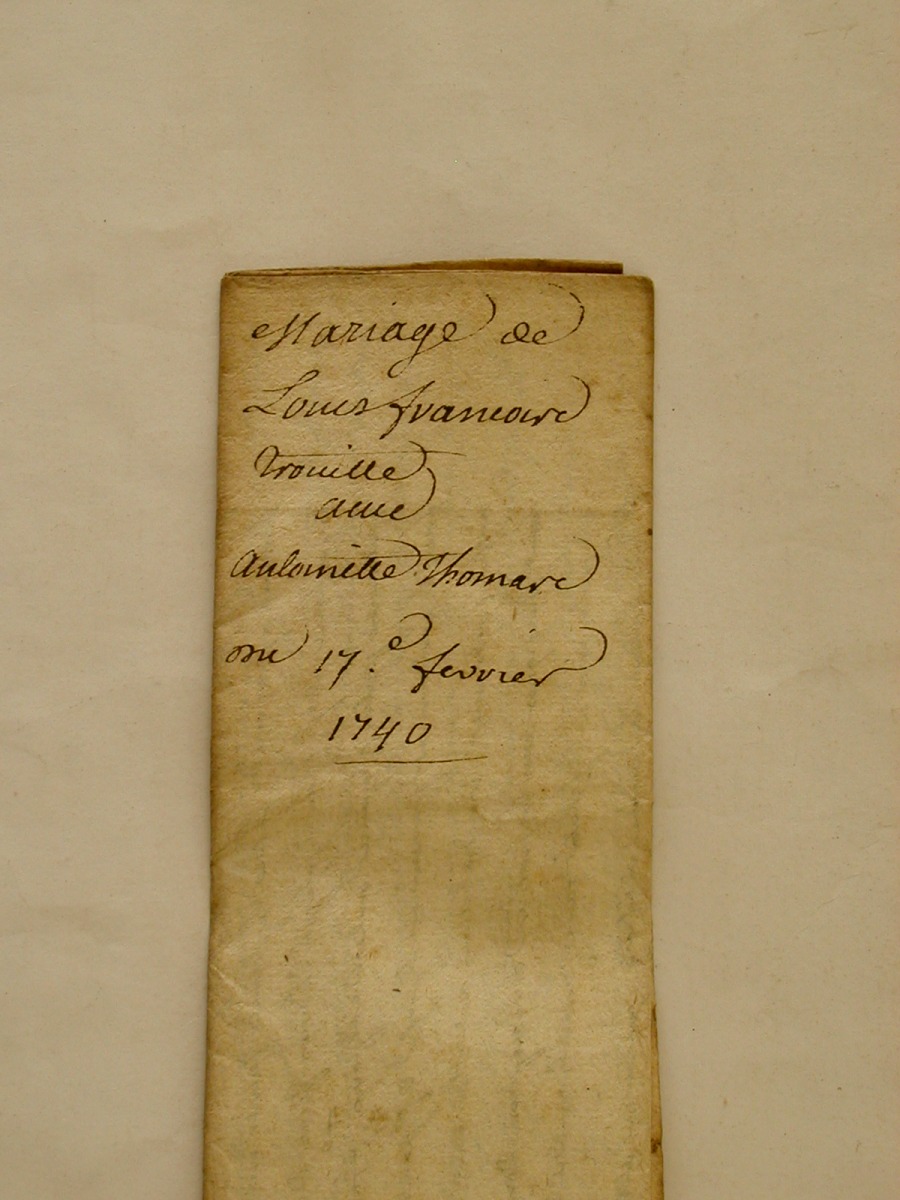 Mariage de
Louis françois
trouille
avec
antoinette Thomas
du 17.e fevrier
1740